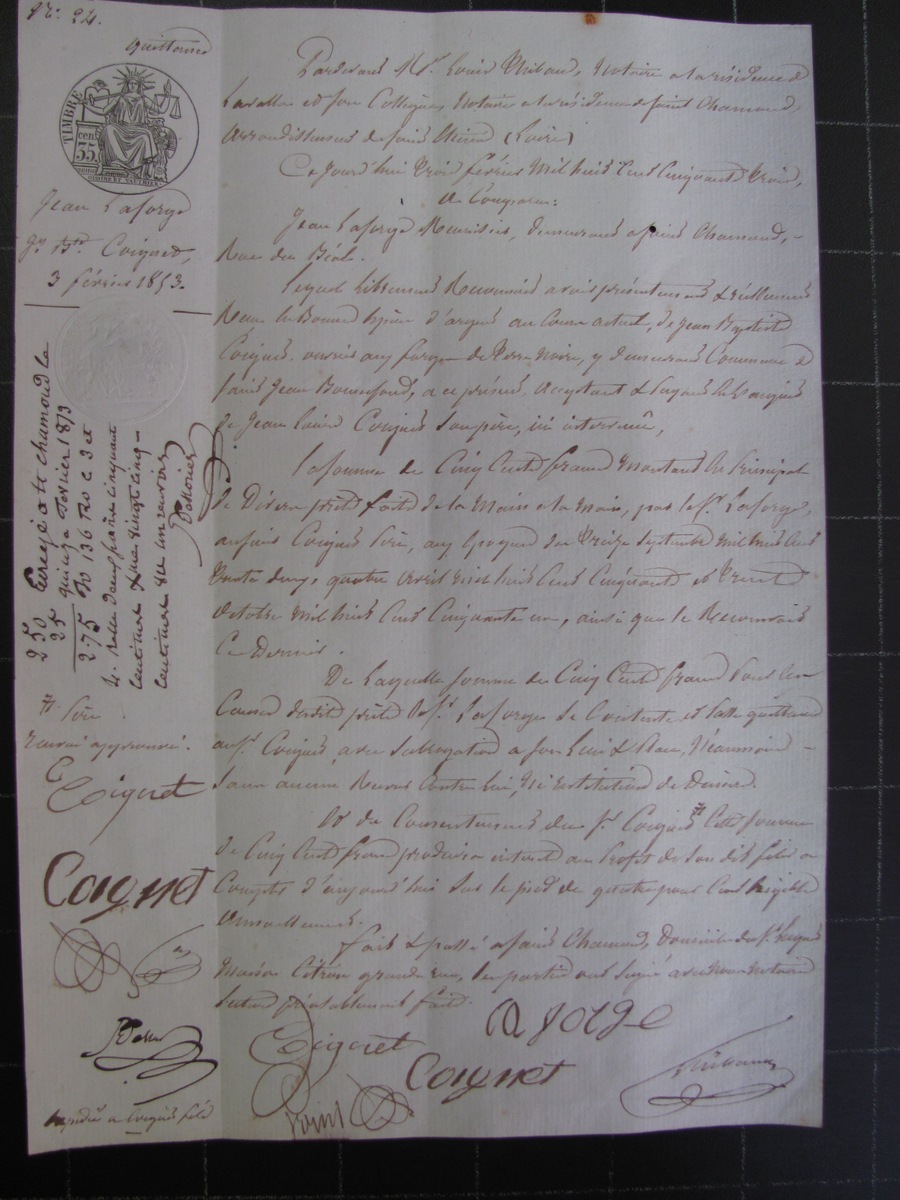 N.° 24.
quittance
TIMBRE
35 cen
Jean Laforge
Jn Bte Coignet,
3 février 1853.
Pardevant Me Louis Thibaud, Notaire à la résidence de
Lavalla et son Collègue, Notaire à la résidence de Saint Chamond,
arrondissement de Saint Etienne (Loire)
Ce jourd'hui trois février mil huit cent cinquante trois,
A Comparu:
Jean Laforge Menuisier, demeurant à Saint Chamond,
Rue du Béal.
Lequel librement Reconnait avoir présentement & réellement
Reçu en Bonnes Espèces d'argent au Cours actuel, de Jean Baptiste
Coignet, ouvrier aux forges de Terre Noire, y demeurant Commune de
Saint Jean Bonnefond, à ce présent, acceptant & payant
de Jean Louis Coignet Son père, ici intervenu,
la Somme de Cinq Cents francs Montant en Principal
de Divers prêts faits de la Main à la Main, par le Sr Laforge,
audit Coignet Père, aux époques du treize Septembre mil huit cent
trente deux, quatre avril mil huit cent cinquante et trente
octobre mil huit cent cinquante un, ainsi que le Reconnait
Ce Dernier.
De Laquelle Somme de Cinq Cents francs Pour les
Causes desdits prêts le Sr Laforge Se Contente et Passe quittance
au Sr Coignet, avec Subrogation à Son Lieu & Place, Néanmoins
Sans aucun Recours Contre lui, Ni Restitution de Deniers.
Et du Consentement du Sr Coignet # Cette Somme
de Cinq Cents francs produira intérêt au Profit de Son dit fils à
Compter d'aujourd'hui Sur le pied de quatre pour Cent Exigible
Annuellement.
Fait & passé à Saint Chamond, Domicile du Sr
Maison Citron grande rue, les parties ont Signé avec Nous Notaires
Lecture préalablement faite.
Enregé à St chamond le
quinze février 1853
fo 136 Ro c 3 et
4. Reçu deux francs cinquante
centimes & vingt cinq
centimes
2 50
25
2.75
# Père.
Renvoi approuvé.
Cigoret
Coignet
Laforge
Cigoret
Coignet
Thibaud
Expédié à Coignet fils